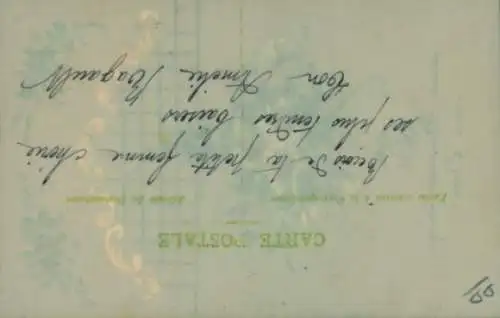 CARTE POSTALE
Partie réservée à la Correspondance
Adresse du Destinataire
Reçois de ta petite femme chérie
ses plus tendres baisers
Ton Amélie Ragault